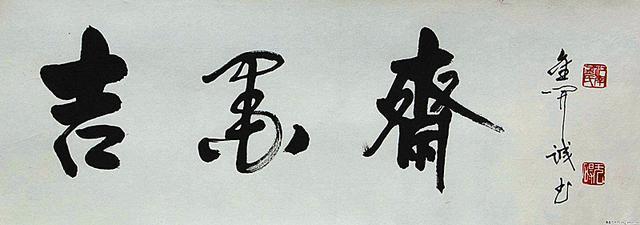 吉墨齋
金開誠书